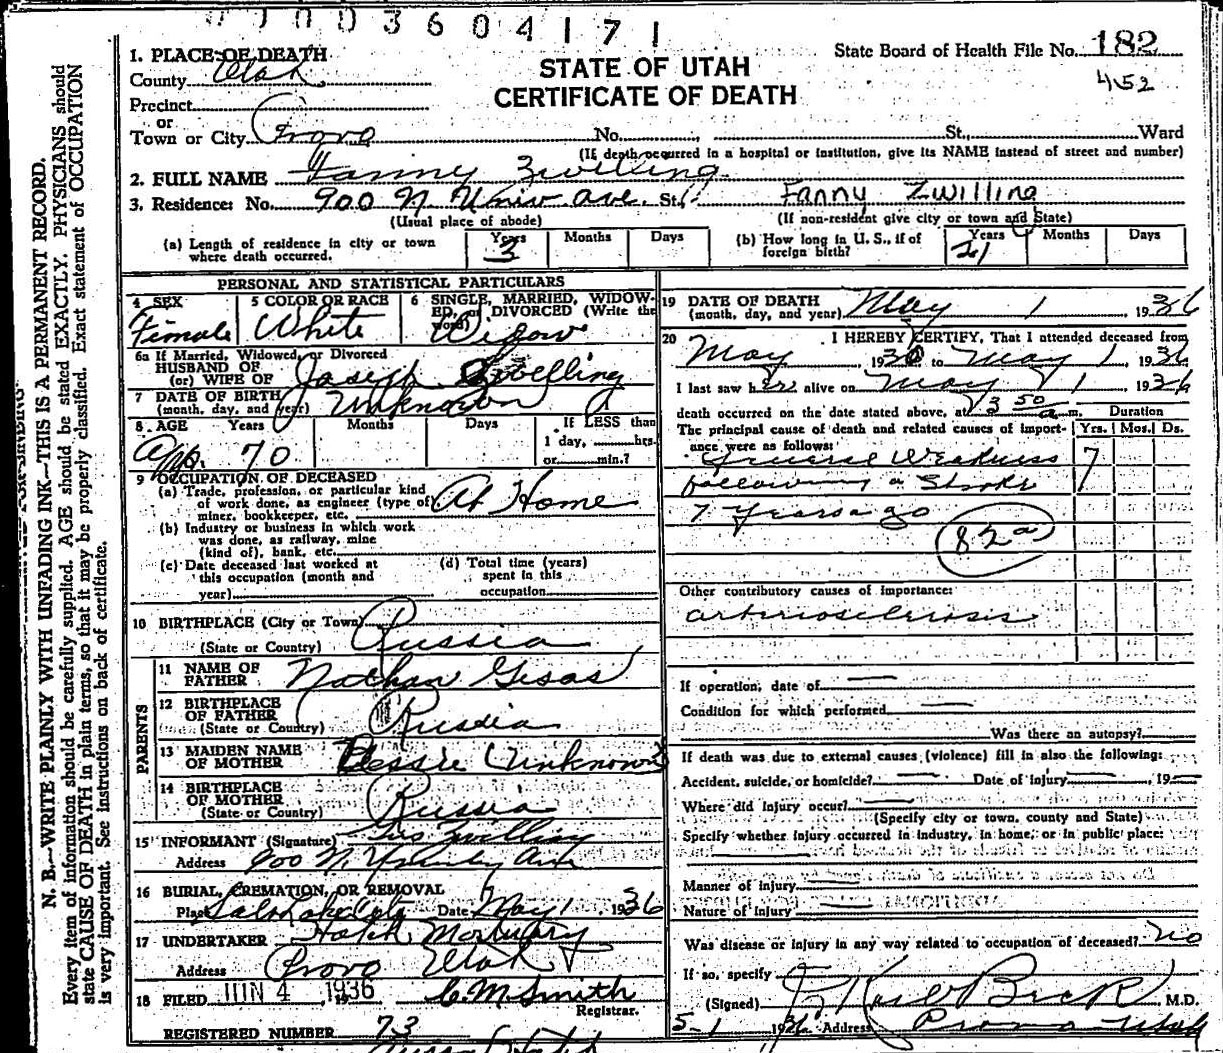 0003604171
State Board of Health File No. 182
452
STATE OF UTAH
CERTIFICATE OF DEATH
1. PLACE OF DEATH
County Utah
Precinct
or
Town or City Provo No. St., Ward
(If death occurred in a hospital or institution, give its NAME instead of street and number)
2. FULL NAME Fanny Zwelling
3. Residence: No. 900 N. Univ ave. St. Fanny Zwilling
(Usual place of abode) (If non-resident give city or town and State)
(a) Length of residence in city or town where death occurred. Years 3 Months Days
(b) How long in U. S., if of foreign birth? Years 21 Months Days
PERSONAL AND STATISTICAL PARTICULARS
4 SEX Female
5 COLOR OR RACE White
6 SINGLE, MARRIED, WIDOWED, or DIVORCED (Write the word) Widow
6a If Married, Widowed, or Divorced
HUSBAND OF
(or) WIFE OF Joseph Zwelling
7 DATE OF BIRTH
(month, day, and year) Unknown
8. AGE Years Months Days If LESS than
1 day, hrs.
or min.?
App. 70
9 OCCUPATION OF DECEASED
(a) Trade, profession, or particular kind of work done, as engineer (type of) miner, bookkeeper, etc. At Home
(b) Industry or business in which work was done, as railway, mine (kind of), bank, etc.
(c) Date deceased last worked at this occupation (month and year)
(d) Total time (years) spent in this occupation
10 BIRTHPLACE (City or Town)
(State or Country) Russia
PARENTS
11 NAME OF FATHER Nathan Gesas
12 BIRTHPLACE OF FATHER
(State or Country) Russia
13 MAIDEN NAME OF MOTHER Bessie Unknown
14 BIRTHPLACE OF MOTHER
(State or Country) Russia
15 INFORMANT (Signature) Zwilling
Address 900 N. Ave
16 BURIAL, CREMATION, OR REMOVAL
Place Salt Lake City Date May 1 1936
17 UNDERTAKER Hatch Mortuary
Address Provo Utah
18 FILED JUN 4 1936 C. M. Smith
Registrar.
REGISTERED NUMBER 73
19 DATE OF DEATH
(month, day, and year) May 1, 1936
20 I HEREBY CERTIFY, That I attended deceased from
May, 1930 to May 1, 1936
I last saw her alive on May 1 1936
death occurred on the date stated above, at 3 50 a.m. Duration
The principal cause of death and related causes of importance were as follows: Yrs. Mos. Ds.
General Weakness 7
following a Stroke
7 years ago
82a
Other contributory causes of importance:
arteriosclerosis
If operation, date of
Condition for which performed
Was there an autopsy?
If death was due to external causes (violence) fill in also the following:
Accident, suicide, or homicide? Date of injury, 19
Where did injury occur?
(Specify city or town, county and State)
Specify whether injury occurred in industry, in home, or in public place:
Manner of injury
Nature of injury
Was disease or injury in any way related to occupation of deceased? no
If so, specify
(Signed) Beck M.D.
5-1 1936 Address Provo Utah
N. B.—WRITE PLAINLY WITH UNFADING INK—THIS IS A PERMANENT RECORD.
Every item of information should be carefully supplied. AGE should be stated EXACTLY. PHYSICIANS should
state CAUSE OF DEATH in plain terms, so that it may be properly classified. Exact statement of OCCUPATION
is very important. See instructions on back of certificate.